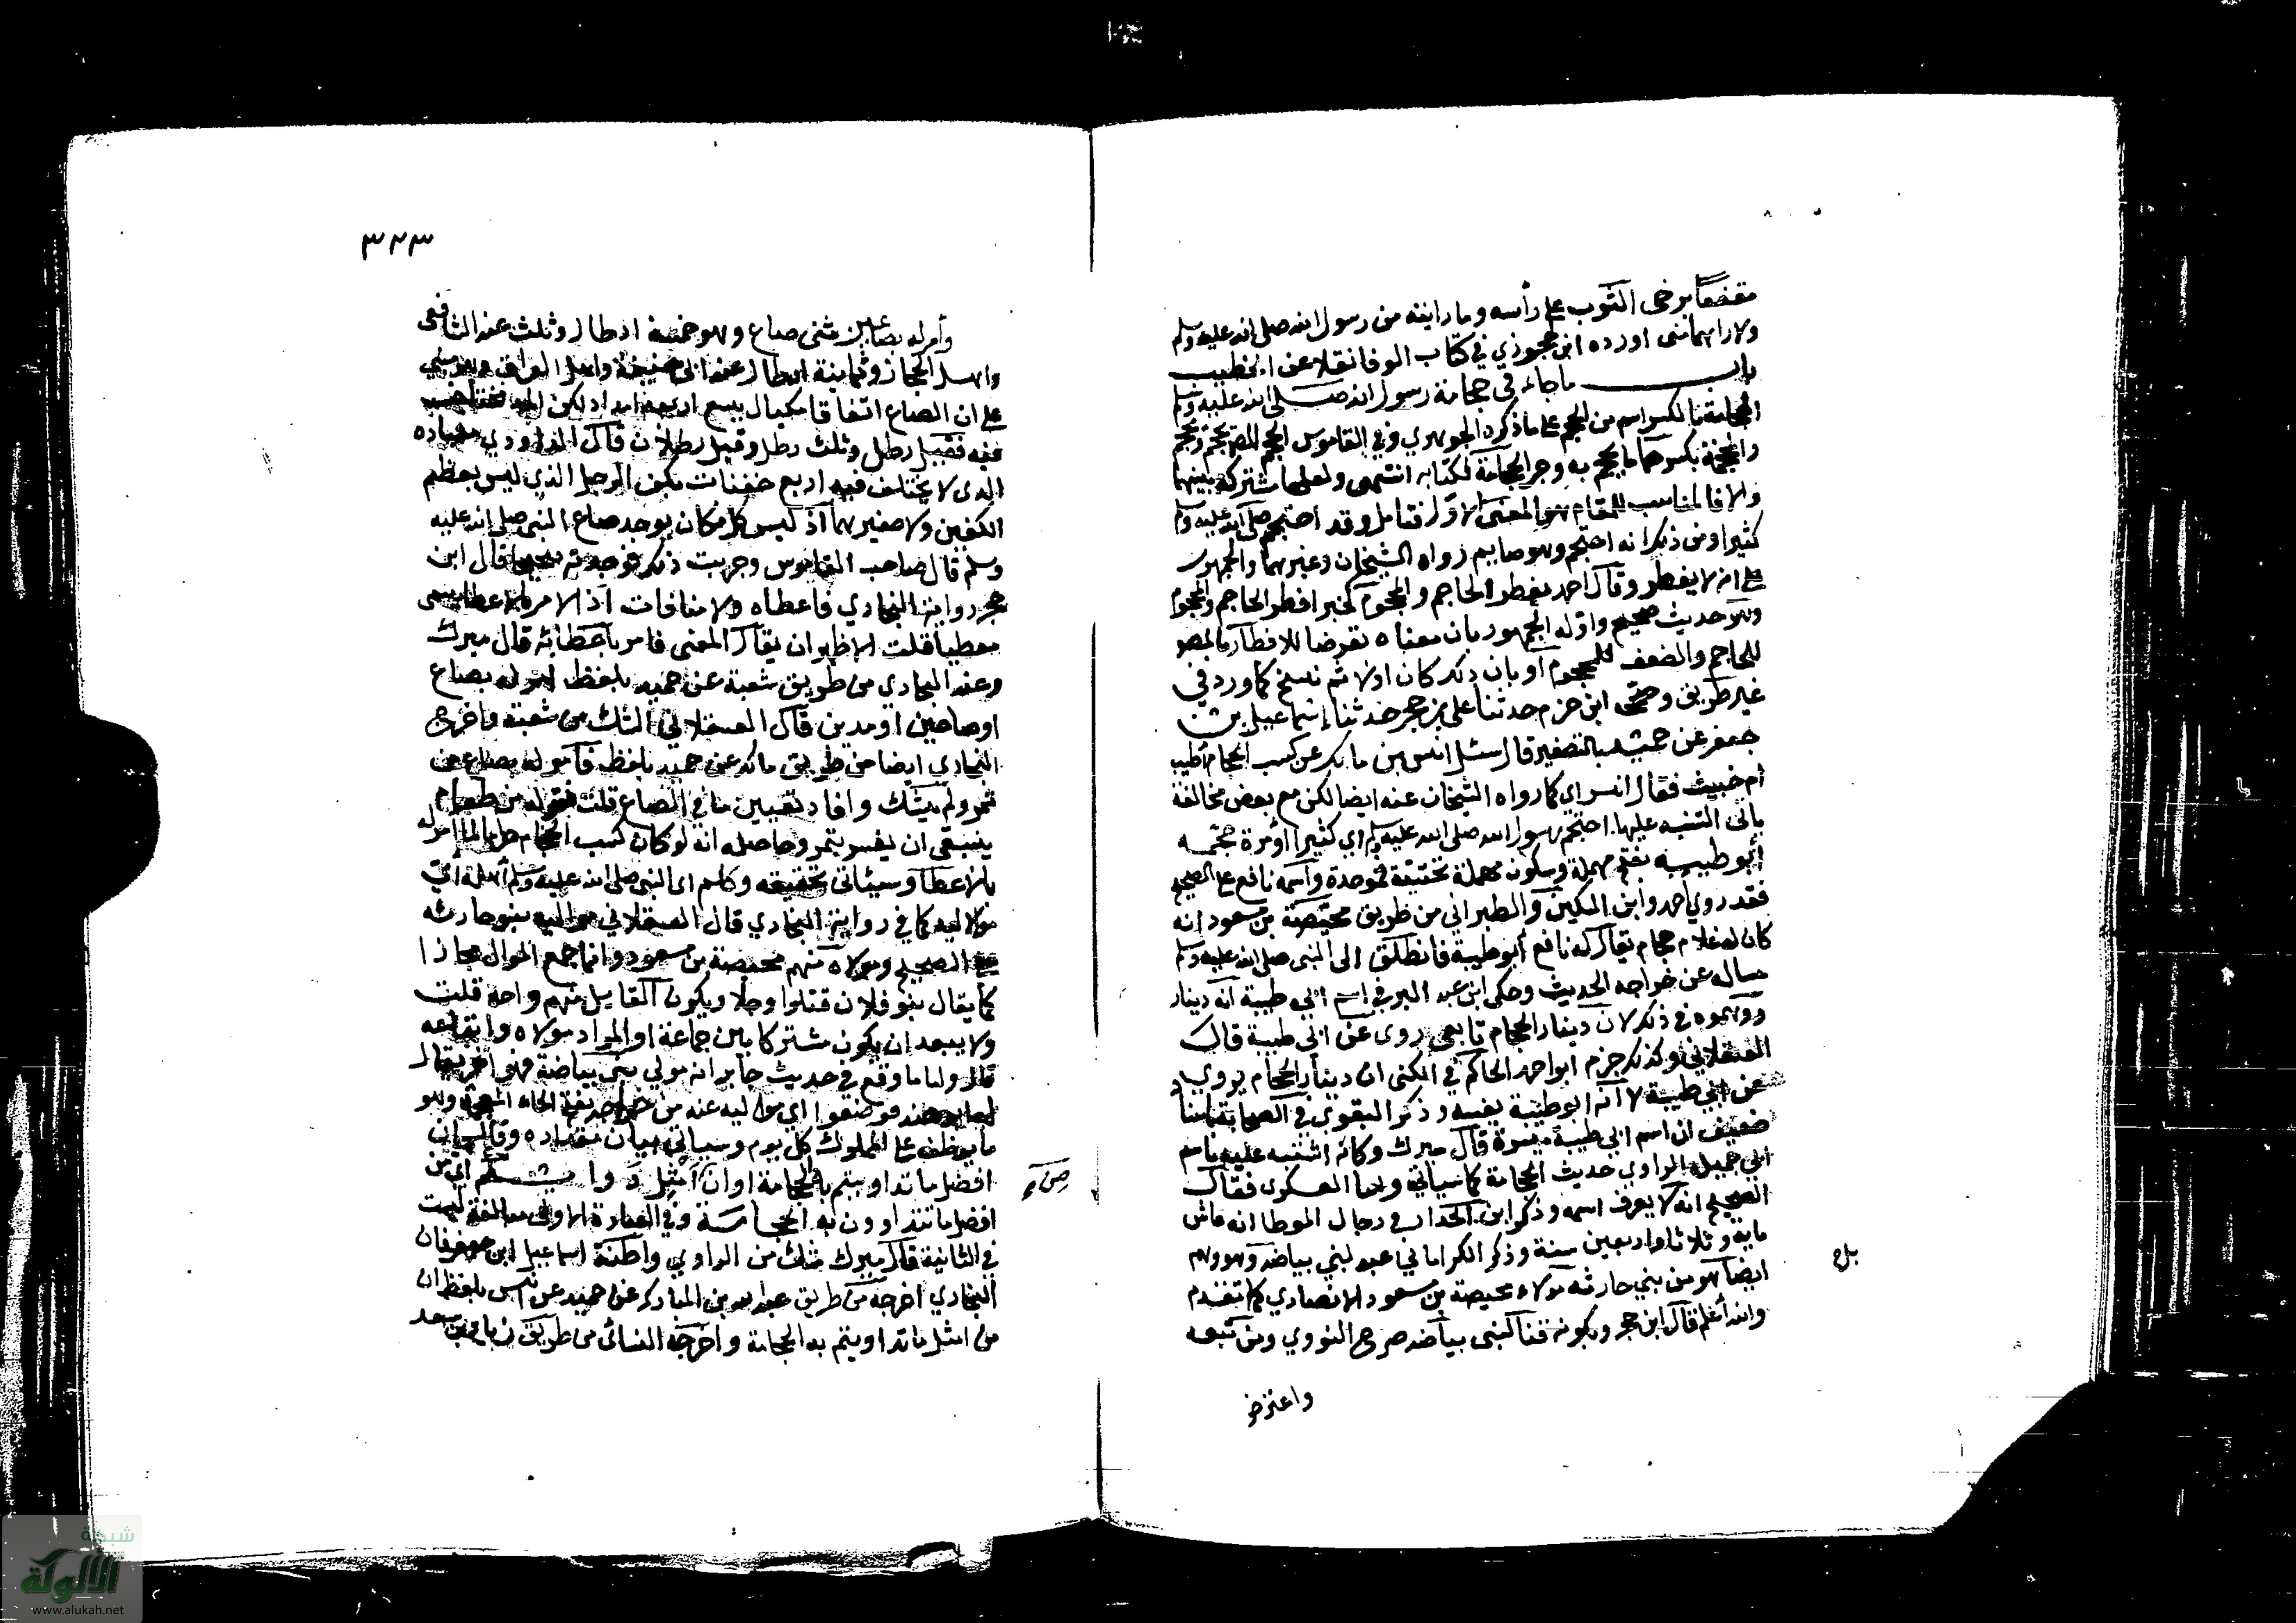 مقنعا يرخى الثوب على رأسه وما رايته من رسول الله صلى الله عليه وسلم
ولا راه منى اورده ابن الجوزي في كتاب الوفا نقلا عن الخطيب
باب ما جاء في حجامة رسول الله صلى الله عليه وسلم
الحجامة بالكسر اسم من الحجم على ما ذكره الجوهري وفي القاموس الحجم المص يحجم ويحجم
والمحجمة بكسرهما ما يحجم به وحرفة الحجامة ككتابة انتهى ولعلها مشتركة بينهما
والا فالمناسب للمقام هو المعنى الاول فتامل وقد احتجم صلى الله عليه وسلم
كثيرا ومن ذلك انه احتجم وهو صايم رواه الشيخان وغيرهما والجمهور
على انه لا يفطر وقال احمد يفطر الحاجم والمحجوم لخبر افطر الحاجم والمحجوم
وهو حديث صحيح واوله الجمهور بان معناه تعرضا للافطار بالمص
للحاجم والضعف للمحجوم او بان ذلك كان اولا ثم نسخ كما ورد في
غير طريق وصححه ابن حزم حدثنا على بن حجر حدثنا اسماعيل بن
جعفر عن حميد بالتصغير قال سئل انس بن مالك عن كسب الحجام أطيب
ام خبيث فقال انس اي كما رواه الشيخان عنه ايضا لكن مع بعض مخالفة
ياتى التنبيه عليها احتجم رسول الله صلى الله عليه وسلم اي كثيرا او مرة حجمه
أبو طيبة بفتح مهملة وسكون تحتية فموحدة واسمه نافع على الصحيح
فقد روى احمد وابن السكن والطبراني من طريق محيصة بن مسعود انه
كان له غلام حجام يقال له نافع أبو طيبة فانطلق الى النبي صلى الله عليه وسلم
يساله عن خراجه الحديث وحكى ابن عبد البر في اسم ابي طيبة انه دينار
ووهموه في ذلك لان دينار الحجام تابعى روى عن ابي طيبة قال
العسقلاني وكذلك جزم ابو احمد الحاكم في الكنى ان دينار الحجام يروي
عن ابي طيبة لا انه ابو طيبة نفسه وذكر البغوى في الصحابة باسناد
ضعيف ان اسم ابي طيبة ميسرة قال ميرك وكانه اشتبه عليه باسم
ابي جميلة الراوي حديث الحجامة كما سياتي واما العسكرى فقال
الصحيح انه لا يعرف اسمه وذكر ابن الحذاء في رجال الموطا انه عاش
ماية وثلاثا واربعين سنة وذكر الكرماني عبد لبني بياضه وهو وهم
ايضا هو من بني حارثه مولاه محيصة بن مسعود الانصاري كما تقدم
والله أعلم قال ابن حجر وبكونه قنا لبنى بياضه صرح النووي ومن تبعه
واعترض
بلغ
٣٢٣
وأمر له بصاعين مثنى صاع وهو خمسة ارطال وثلث عند الشافعى
واهل الحجاز وثمانية ارطال عند ابى حنيفة واهل العراق وهو مبنى
على ان الصاع اتفاقا مكيال يسع اربعة امداد لكن المد مختلف
فيه فقيل رطل وثلث رطل وقيل رطلان قال الداودي معياره
الذى لا يختلف فيه اربع حفنات بكفى الرجل الذي ليس بعظيم
الكفين ولا صغيرهما اذ ليس كل مكان يوجد صاع النبي صلى الله عليه
وسلم قال صاحب القاموس وجربت ذلك فوجدته صحيحا قال ابن
حجر رواية البخاري فاعطاه ولا منافات اذ الامر بالاعطا يسمى
معطيا قلت الاظهر ان يقال المعنى فامر باعطائه قال ميرك
وعند البخاري من طريق شعبة عن حميد بلفظ امر له بصاع
او صاعين او مدين قال العسقلاني الشك من شعبة واخرج
البخاري ايضا من طريق مالك عن حميد بلفظ فأمر له بصاع من
تمر ولم يشك وافاد تعيين ما في الصاع قلت فقوله من طعام
ينبغى ان يفسر بتمر وحاصله انه لو كان كسب الحجام حراما لما امر له
بالاعطا وسيئاتى تحقيقه وكلم اى النبي صلى الله عليه وسلم أهله اي
مواليه كما في رواية البخاري قال العسقلاني مواليه بنو حارثه
على الصحيح ومولاه منهم محيصة بن مسعود وانما جمع الموالى مجازا
كما يقال بنو فلان قتلوا رجلا ويكون القايل منهم واحد قلت
ولا يبعد ان يكون مشتركا بين جماعة او المراد مولاه واتباعه
قال واما ما وقع في حديث جابر انه مولى بنى بياضة فهو اخر يقال
له ابو هند فوضعوا اي مواليه عنه من خراجه بفتح الخاء المعجمة وهو
ما يوظف على المملوك كل يوم وسياتي بيان مقداره وقال ان
افضل ما تداويتم به الحجامة او ان أمثل دوايكم اي من
افضل ما تتداوون به الحجامة وفي العبارة الاولى مبالغة ليست
في الثانية قال ميرك شك من الراوي واظنه اسماعيل ابن جعفر فان
البخاري اخرجه من طريق عبد الله بن المبارك عن حميد عن انس بلفظ ان
من امثل ما تداويتم به الحجامة واخرجه النسائى من طريق زياد بن سعد
شبكة
الألوكة
www.alukah.net